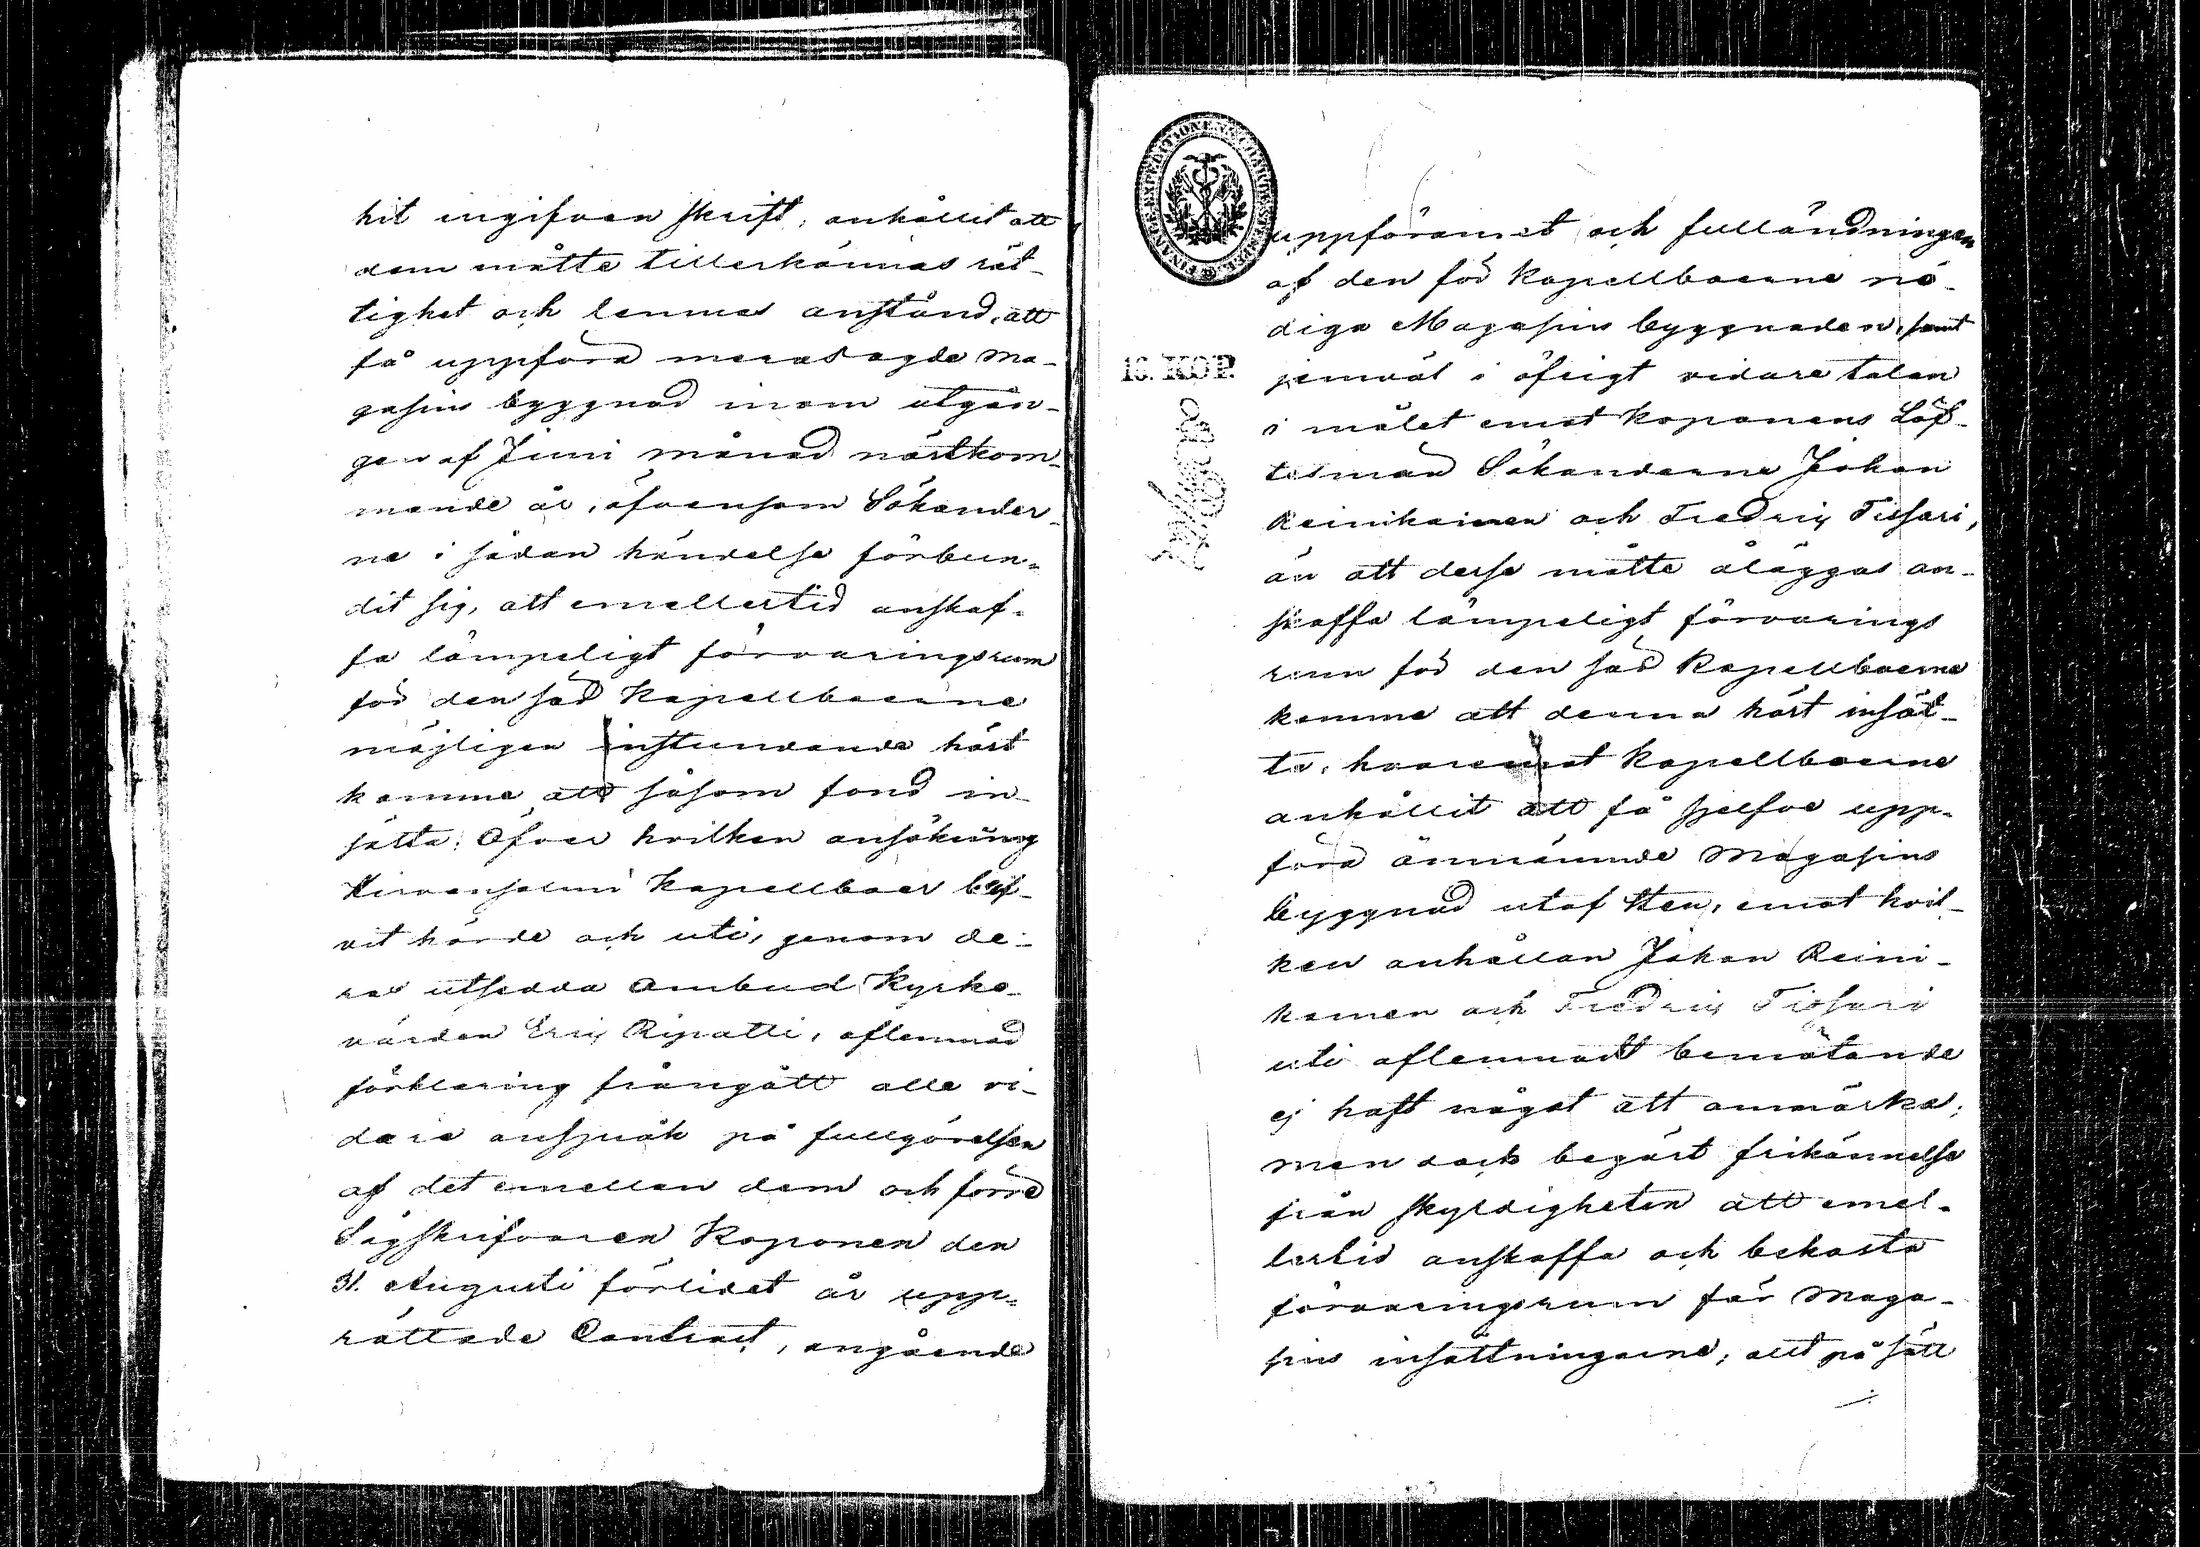 hit ingifven skrift, anhållit att
dem måtte tillerkännas rät-
tighet och lemnas anstånd, att
få uppföra merasagde Ma-
gasins byggnad inom utgån-
gen af Juni månad nästkom-
mande år, äfvensom Sökander-
ne i sådan händelse förbun-
dit sig, att emellertid anskaf-
fa lämpeligt förvaringsrum
för den säd Kapellboerne
möjligen instundande höst
komme att såsom fond in-
sätta: Öfver hvilken ansökning
Hirvensalmi Kapellboer blif-
vit hörde och uti, genom de-
ras utsedda Ombud Kyrko-
värden Eric Ripatti, aflemnad
förklaring frångått alla vi-
dare anspråk på fullgörelsen
af det emellan dem och förre
Lögskrifvaren Koponen den
31. Augusti förlidet år upp-
rättade Contract, angående
FINANCE EXPEDITIONENS CHARTÆ SIGILLATÆ
16. KOP.
uppförandet och fulländningen
af den för Kapellboerne nö-
diga Magasins byggnaden, samt
jemväl i öfrigt vidare talan
i målet emot Koponens Löf-
tesmän Sökanderne Johan
Reinikainen och Fredric Tissari,
än att desse måtte åläggas an-
skaffa lämpeligt förvarings
rum för den säd Kapellboerne
komme att denna höst insät-
ta, hvaremot Kapellboerne
anhållit att få sjelfve upp-
föra ömnämnde Magasins
byggnad utaf Sten, emot hvil-
ken anhållan Johan Reini-
kainen och Fredric Tissari
uti aflemnadt bemötande
ej haft något att anmärka;
men dock begärt frikännelse
från skyldigheten att emel-
lertid anskaffa och bekosta
förvaringsrum för Maga-
sins insättningarne; allt på sätt